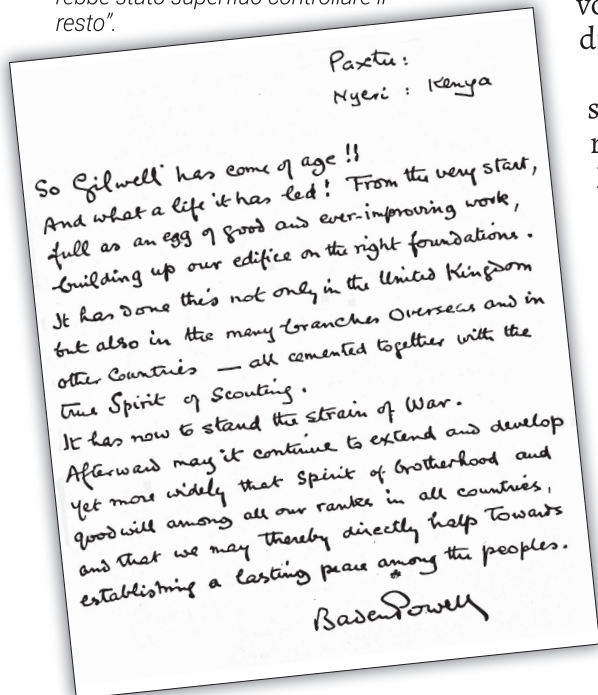 rebbe stato superfluo controllare il
resto”.
Paxtu:
Nyeri : Kenya
So Gilwell has come of age !!
And what a life it has led! From the very start,
full as an egg of good and ever-improving work,
building up our edifice on the right foundations.
It has done this not only in the United Kingdom
but also in the many branches Overseas and in
other Countries — all cemented together with the
true Spirit of Scouting.
It has now to stand the strain of War.
Afterward may it continue to extend and develop
yet more widely that Spirit of brotherhood and
goodwill among all our ranks in all countries,
and that we may thereby directly help Towards
establishing a lasting peace among the peoples.
Baden Powell